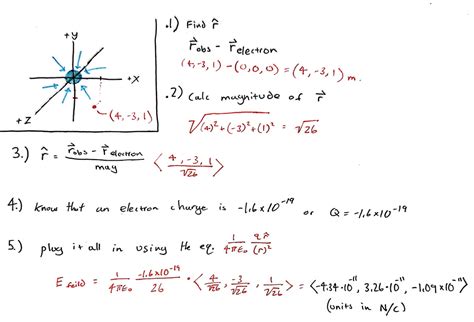 +y
+x
+z
(4,-3,1)
.1) Find r̂
r⃗obs - r⃗electron
(4,-3,1) - (0,0,0) = (4,-3,1) m.
.2) Calc magnitude of r⃗
√(4)²+(-3)²+(1)² = √26
3.) r̂ = r⃗obs - r⃗electron / mag < 4,-3,1 / √26 >
4.) Know that an electron charge is -1.6x10⁻¹⁹ or Q = -1.6x10⁻¹⁹
5.) plug it all in using the eq. 1/4πε₀ q r̂/(r)²
E feild = 1/4πε₀ -1.6x10⁻¹⁹/26 · < 4/√26, -3/√26, 1/√26 > = <-4.34·10⁻¹¹, 3.26·10⁻¹¹, -1.09x10⁻¹¹>
(units in N/C)